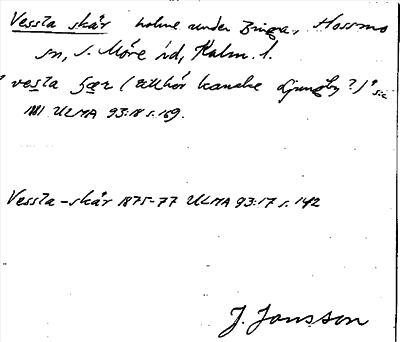 Vessta skär holme under Binga, Hossmo
sn, S. Möre hd, Kalm. l.
"vesta sæ̱r (tillhör kanske Ljungby?)" sic
1881 ULMA 93:18 s. 169.
Vessta-skär 1875-77 ULMA 93:17 s. 142
J. Jonsson